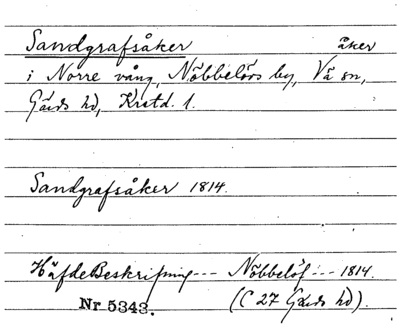 Sandgrafsåker åker
i Norre vång, Nöbbelörs by, Vä sn,
Gärds hd, Krstd. l.
Sandgrafsåker 1814.
HäfdeBeskrifning --- Nöbbelöf --- 1814.
Nr. 5343. (C 27 Gärds hd).